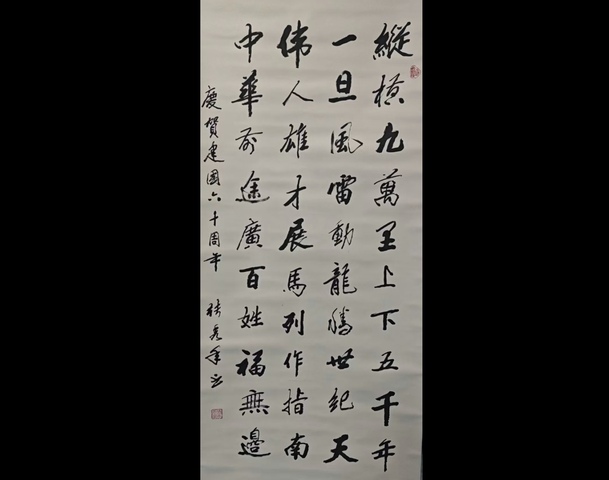 縱橫九萬里上下五千年
一旦風雷動龍騰世紀天
偉人雄才展馬列作指南
中華前途廣百姓福無邊
慶賀建國六十周年